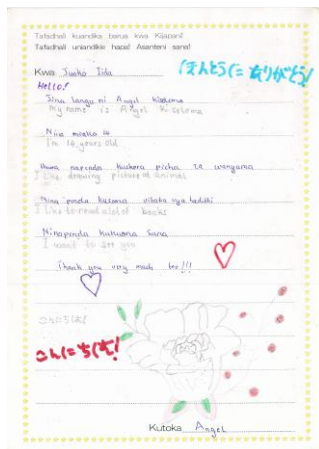 Tafadhali kuandika barua kwa Kijapani!
Tafadhali uniandikie hapa! Asanteni sana!
Kwa Junko Iida
ほんとうに ありがとう!
Hello!
Jina langu ni Angel
My name is Angel
Nina miaka 14
I'm 14 years old
napenda kuchora picha za wanyama
I like drawing picture animal
Nina penda kusoma vitabu vya
I like to read alot of books
Ninapenda kukuona Sana
I want to see you
Thank you very much
こんにちは!
こんにちは!
Kutoka Angel